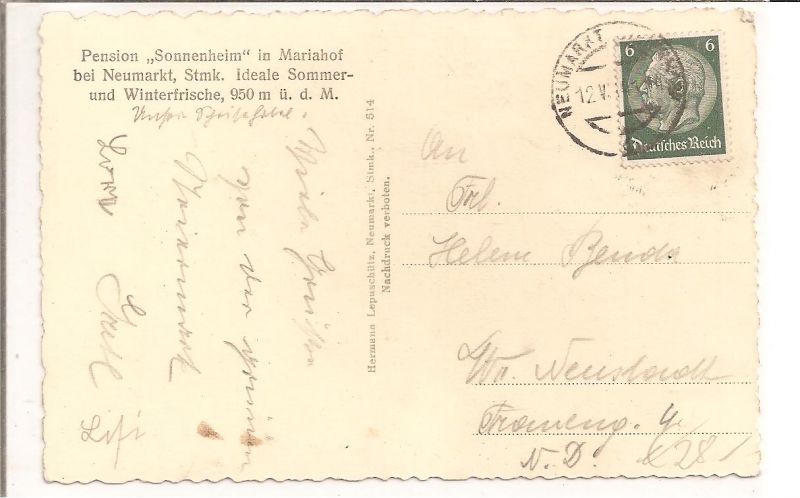 Pension „Sonnenheim" in Mariahof
bei Neumarkt, Stmk. Ideale Sommer-
und Winterfrische, 950 m ü. d. M.
Viele Grüße
von der grünen
Steiermark
Lisi
Hermann Lepuschütz, Neumarkt, Stmk., Nr. 514
Nachdruck verboten.
NEUMARKT
12.V.
6 6
Deutsches Reich
An
Frl.
Helene Benda
Wr. Neustadt
N. D.